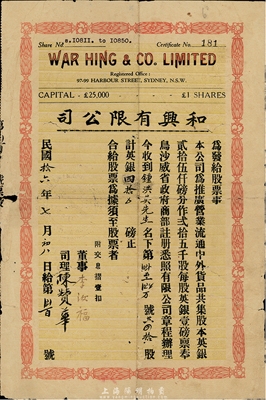 Share No s.10811. to 10850. Certificate No 181
WAR HING & CO. LIMITED
Registered Office :
97-99 HARBOUR STREET, SYDNEY, N.S.W.
CAPITAL - £25,000 - £1 SHARES
司公限有興和
為發給股票事
本公司為推廣營業流通中外貨品共集股本英銀
貳拾五仟磅分作弍拾五千股每股英銀壹磅禀奉
鳥沙威省政府商部註冊悉照有限公司章程辦理
今收到鍾洪天先生名下第 股
計英銀四拾磅正
附交息摺壹扣
合給股票為據須至股票者
董事李
司理陳
民國拾六年七月初八日給第 號